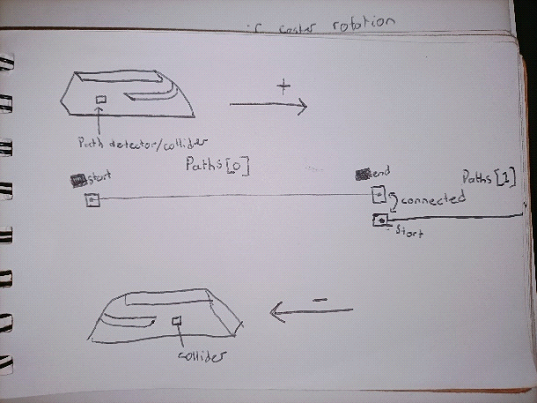 coaster rotation
+
Path detector/collider
Paths[0]
start
end
Paths[1]
connected
Start
-
collider